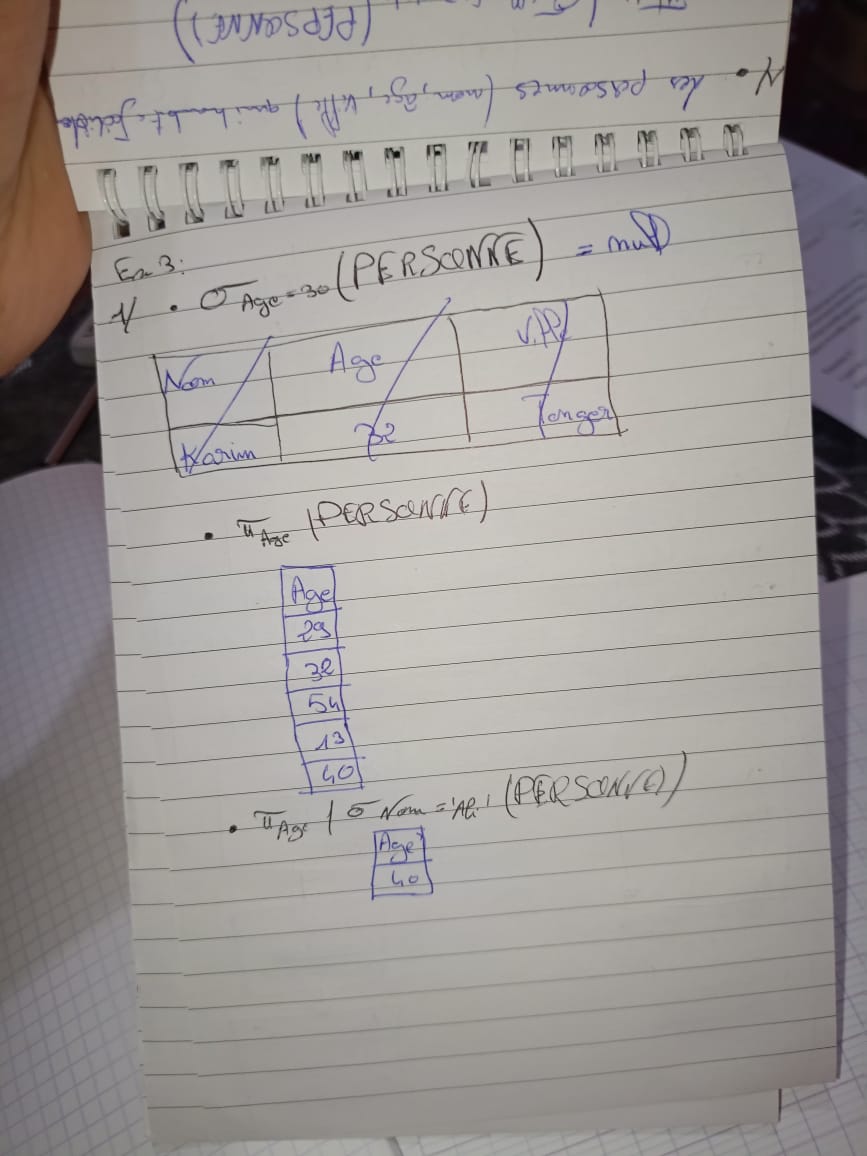 (PERSONNE)
1/ • les personnes (nom, âge, ville) qui habite
Ex 3:
1/ • σ Age=30 (PERSONNE) = null
Nom Age Ville
Karim 32 Tanger
• π Age (PERSONNE)
Age
29
32
54
13
40
• π Age ( σ Nom = 'Ali' (PERSONNE)
Age
40